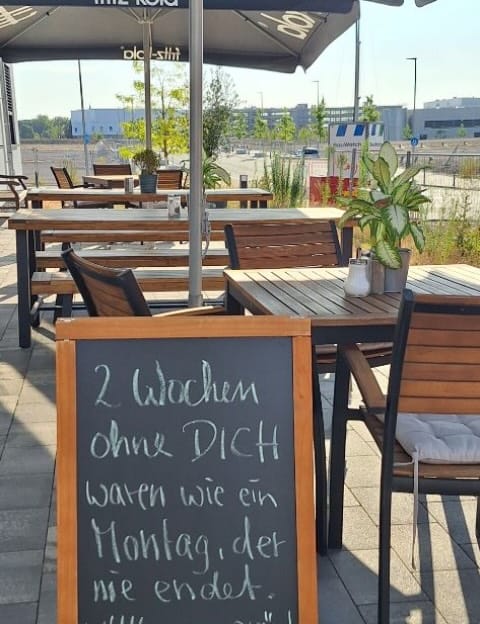 fritz-kola
fritz-kola
2 Wochen
ohne DICH
waren wie ein
Montag, der
nie endet.